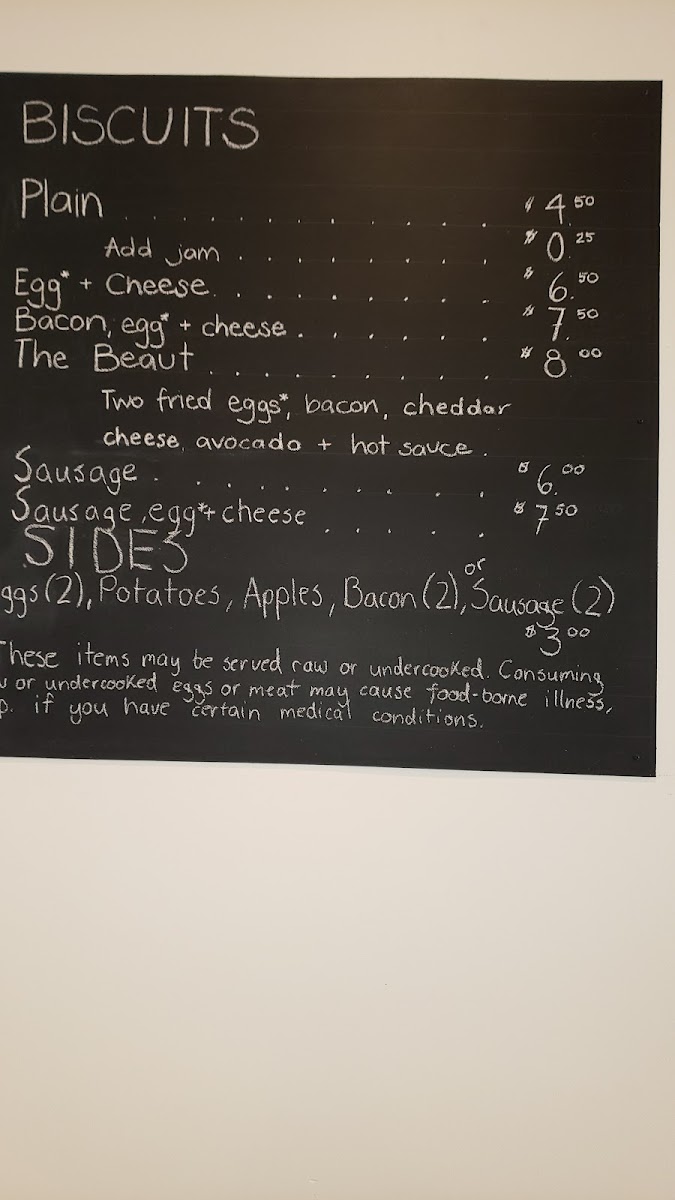 BISCUITS
Plain . . . . . . . . . . . . $ 4.50
Add jam . . . . . . . . $ 0.25
Egg* + Cheese. . . . . . . . . $ 6.50
Bacon, egg* + cheese . . . . . . . $ 7.50
The Beaut . . . . . . . . . . $ 8.00
Two fried eggs*, bacon, cheddar
cheese, avocado + hot sauce.
Sausage . . . . . . . . . . $ 6.00
Sausage, egg*+ cheese . . . . . $ 7.50
SIDES
ggs (2), Potatoes, Apples, Bacon (2), or Sausage (2)
$3.00
These items may be served raw or undercooked. Consuming
or undercooked eggs or meat may cause food-borne illness,
p. if you have certain medical conditions.